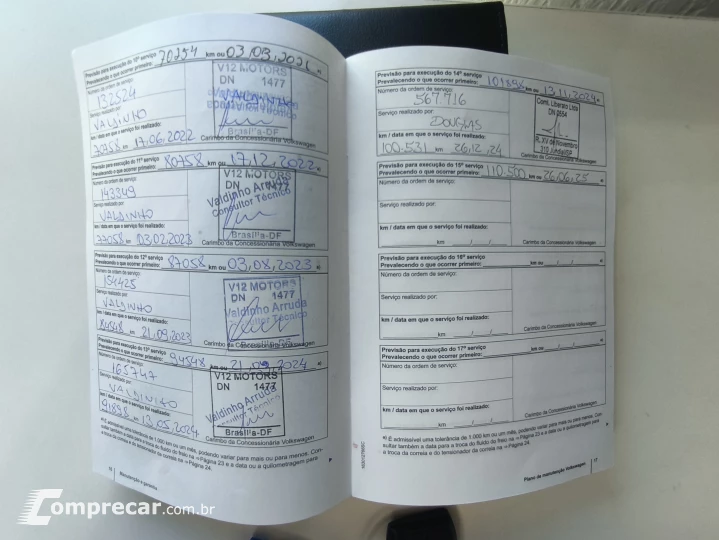 Previsão para execução do 10º serviço
Prevalecendo o que ocorrer primeiro: 70254 km ou 03.03.2021 a)
Número da ordem de serviço:
132524
Serviço realizado por:
VALDINHO
km / data em que o serviço foi realizado:
70758 km 17.06.2022
V12 MOTORS
DN 1477
Brasília-DF
Carimbo da Concessionária Volkswagen
Previsão para execução do 11º serviço
Prevalecendo o que ocorrer primeiro: 80758 km ou 17.12.2022 a)
Número da ordem de serviço:
143349
Serviço realizado por:
VALDINHO
km / data em que o serviço foi realizado:
77058 km 03.02.2023
V12 MOTORS
DN 1477
Valdinho Arruda
Consultor Técnico
Brasília-DF
Carimbo da Concessionária Volkswagen
Previsão para execução do 12º serviço
Prevalecendo o que ocorrer primeiro: 87058 km ou 03.08.2023 a)
Número da ordem de serviço:
154425
Serviço realizado por:
VALDINHO
km / data em que o serviço foi realizado:
84548 km 21.09.2023
V12 MOTORS
DN 1477
Valdinho Arruda
Consultor Técnico
Brasília-DF
Carimbo da Concessionária Volkswagen
Previsão para execução do 13º serviço
Prevalecendo o que ocorrer primeiro: 94548 km ou 21.09.2024 a)
Número da ordem de serviço:
165747
Serviço realizado por:
VALDINHO
km / data em que o serviço foi realizado:
91898 km 13.05.2024
V12 MOTORS
DN 1477
Valdinho Arruda
Consultor Técnico
Brasília-DF
Carimbo da Concessionária Volkswagen
a) É admissível uma tolerância de 1.000 km ou um mês, podendo variar para mais ou para menos. Con-
sultar também a data para a troca do fluido do freio na ⇒Página 23 e a data ou a quilometragem para
a troca da correia e do tensionador da correia na ⇒Página 24.
Manutenção e garantia
Previsão para execução do 14º serviço
Prevalecendo o que ocorrer primeiro: 101898 km ou 13.11.2024 a)
Número da ordem de serviço:
567.716
Serviço realizado por:
DOUGLAS
km / data em que o serviço foi realizado:
100.531 km 26.12.24
Coml. Liberato Ltda
DN 2554
R. XV de Novembro
Carimbo da Concessionária Volkswagen
Previsão para execução do 15º serviço
Prevalecendo o que ocorrer primeiro: 110.500 km ou 26.06.25 a)
Número da ordem de serviço:
Serviço realizado por:
km / data em que o serviço foi realizado:
km / /
Carimbo da Concessionária Volkswagen
Previsão para execução do 16º serviço
Prevalecendo o que ocorrer primeiro: km ou / / a)
Número da ordem de serviço:
Serviço realizado por:
km / data em que o serviço foi realizado:
km / /
Carimbo da Concessionária Volkswagen
Previsão para execução do 17º serviço
Prevalecendo o que ocorrer primeiro: km ou / / a)
Número da ordem de serviço:
Serviço realizado por:
km / data em que o serviço foi realizado:
km / /
Carimbo da Concessionária Volkswagen
a) É admissível uma tolerância de 1.000 km ou um mês, podendo variar para mais ou para menos. Con-
sultar também a data para a troca do fluido do freio na ⇒Página 23 e a data ou a quilometragem para
a troca da correia e do tensionador da correia na ⇒Página 24.
Plano de manutenção Volkswagen 17
Comprecar.com.br